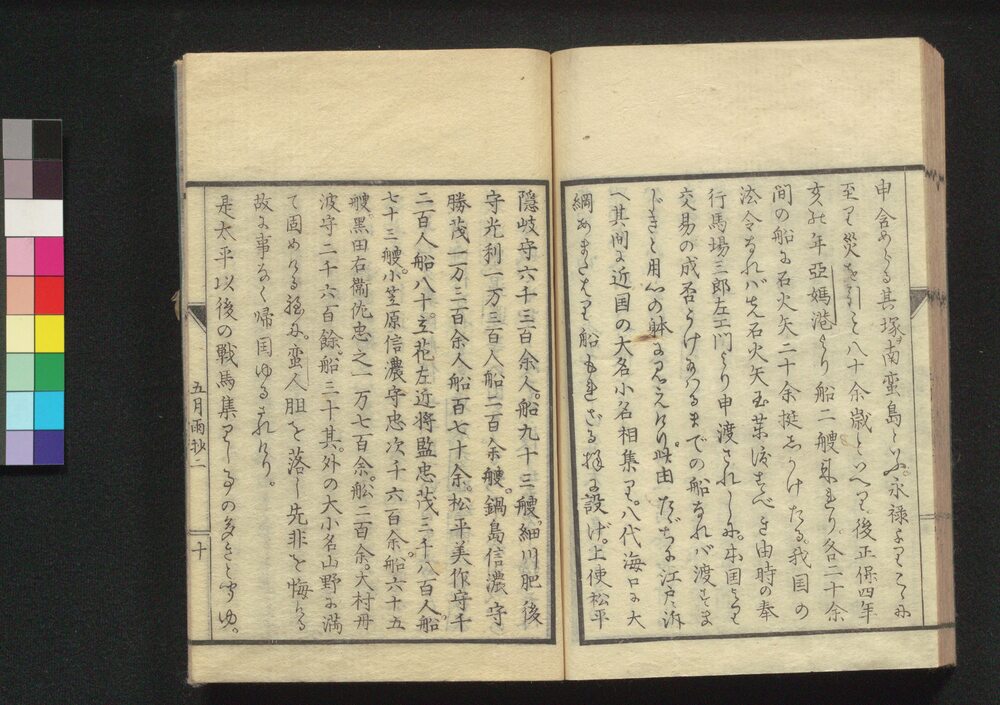 申合めらる其塚南蛮島といふ。永禄よりこゝに
至り災を引と八十余歳といへり後正保四年
亥の年亞媽港より船二艘来り。各二十余
間の船に石火矢二十余挺しかけたる。我国の
法令なれバ先石火矢玉薬渡すべき由時の奉
行馬場三郎左エ門より申渡されしに。本国より
交易の成否うけ給はるまでの船なれバ渡すま
じきと用心の躰に見えけり此由たゞちに江戸に訴
へ其間に近国の大名小名相集り。八代海口に大
綱あまたはり船もれざる様に設げ。上使松平
隠岐守六千三百余人。船九十三艘。細川肥後
守光利一万三百人船二百余艘。鍋島信濃守
勝茂一万三百余人船百七十余。松平美作守千
二百人船八十。立花左近将監忠茂三千八百人船。
七十三艘。小笠原信濃守忠次千六百余。船六十五
艘。黒田右衛佐忠之一万七百余。舩二百余。大村丹
波守二千六百餘。船三十其。外の大小名山野に満
て固めける程に。蛮人胆を落し先非を悔ける
故に事なく帰国ゆるされけり。
是太平以後の戦馬集りし事の多きと聞ゆ。
五月雨抄二
十